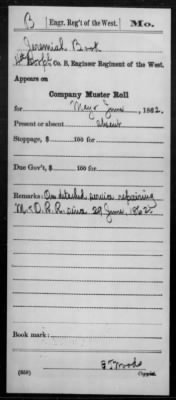 B | Engr. Reg't of the West. | Mo.
Jeremiah Book
Corpl, Co. B, Engineer Regiment of the West.
Appears on
Company Muster Roll
for May & June, 1862.
Present or absent Absent
Stoppage, $ 100 for
Due Gov't, $ 100 for
Remarks: On detached service repairing
M. & O. R. R. since 29 June, 1862
Book mark:
(358) Copyist.